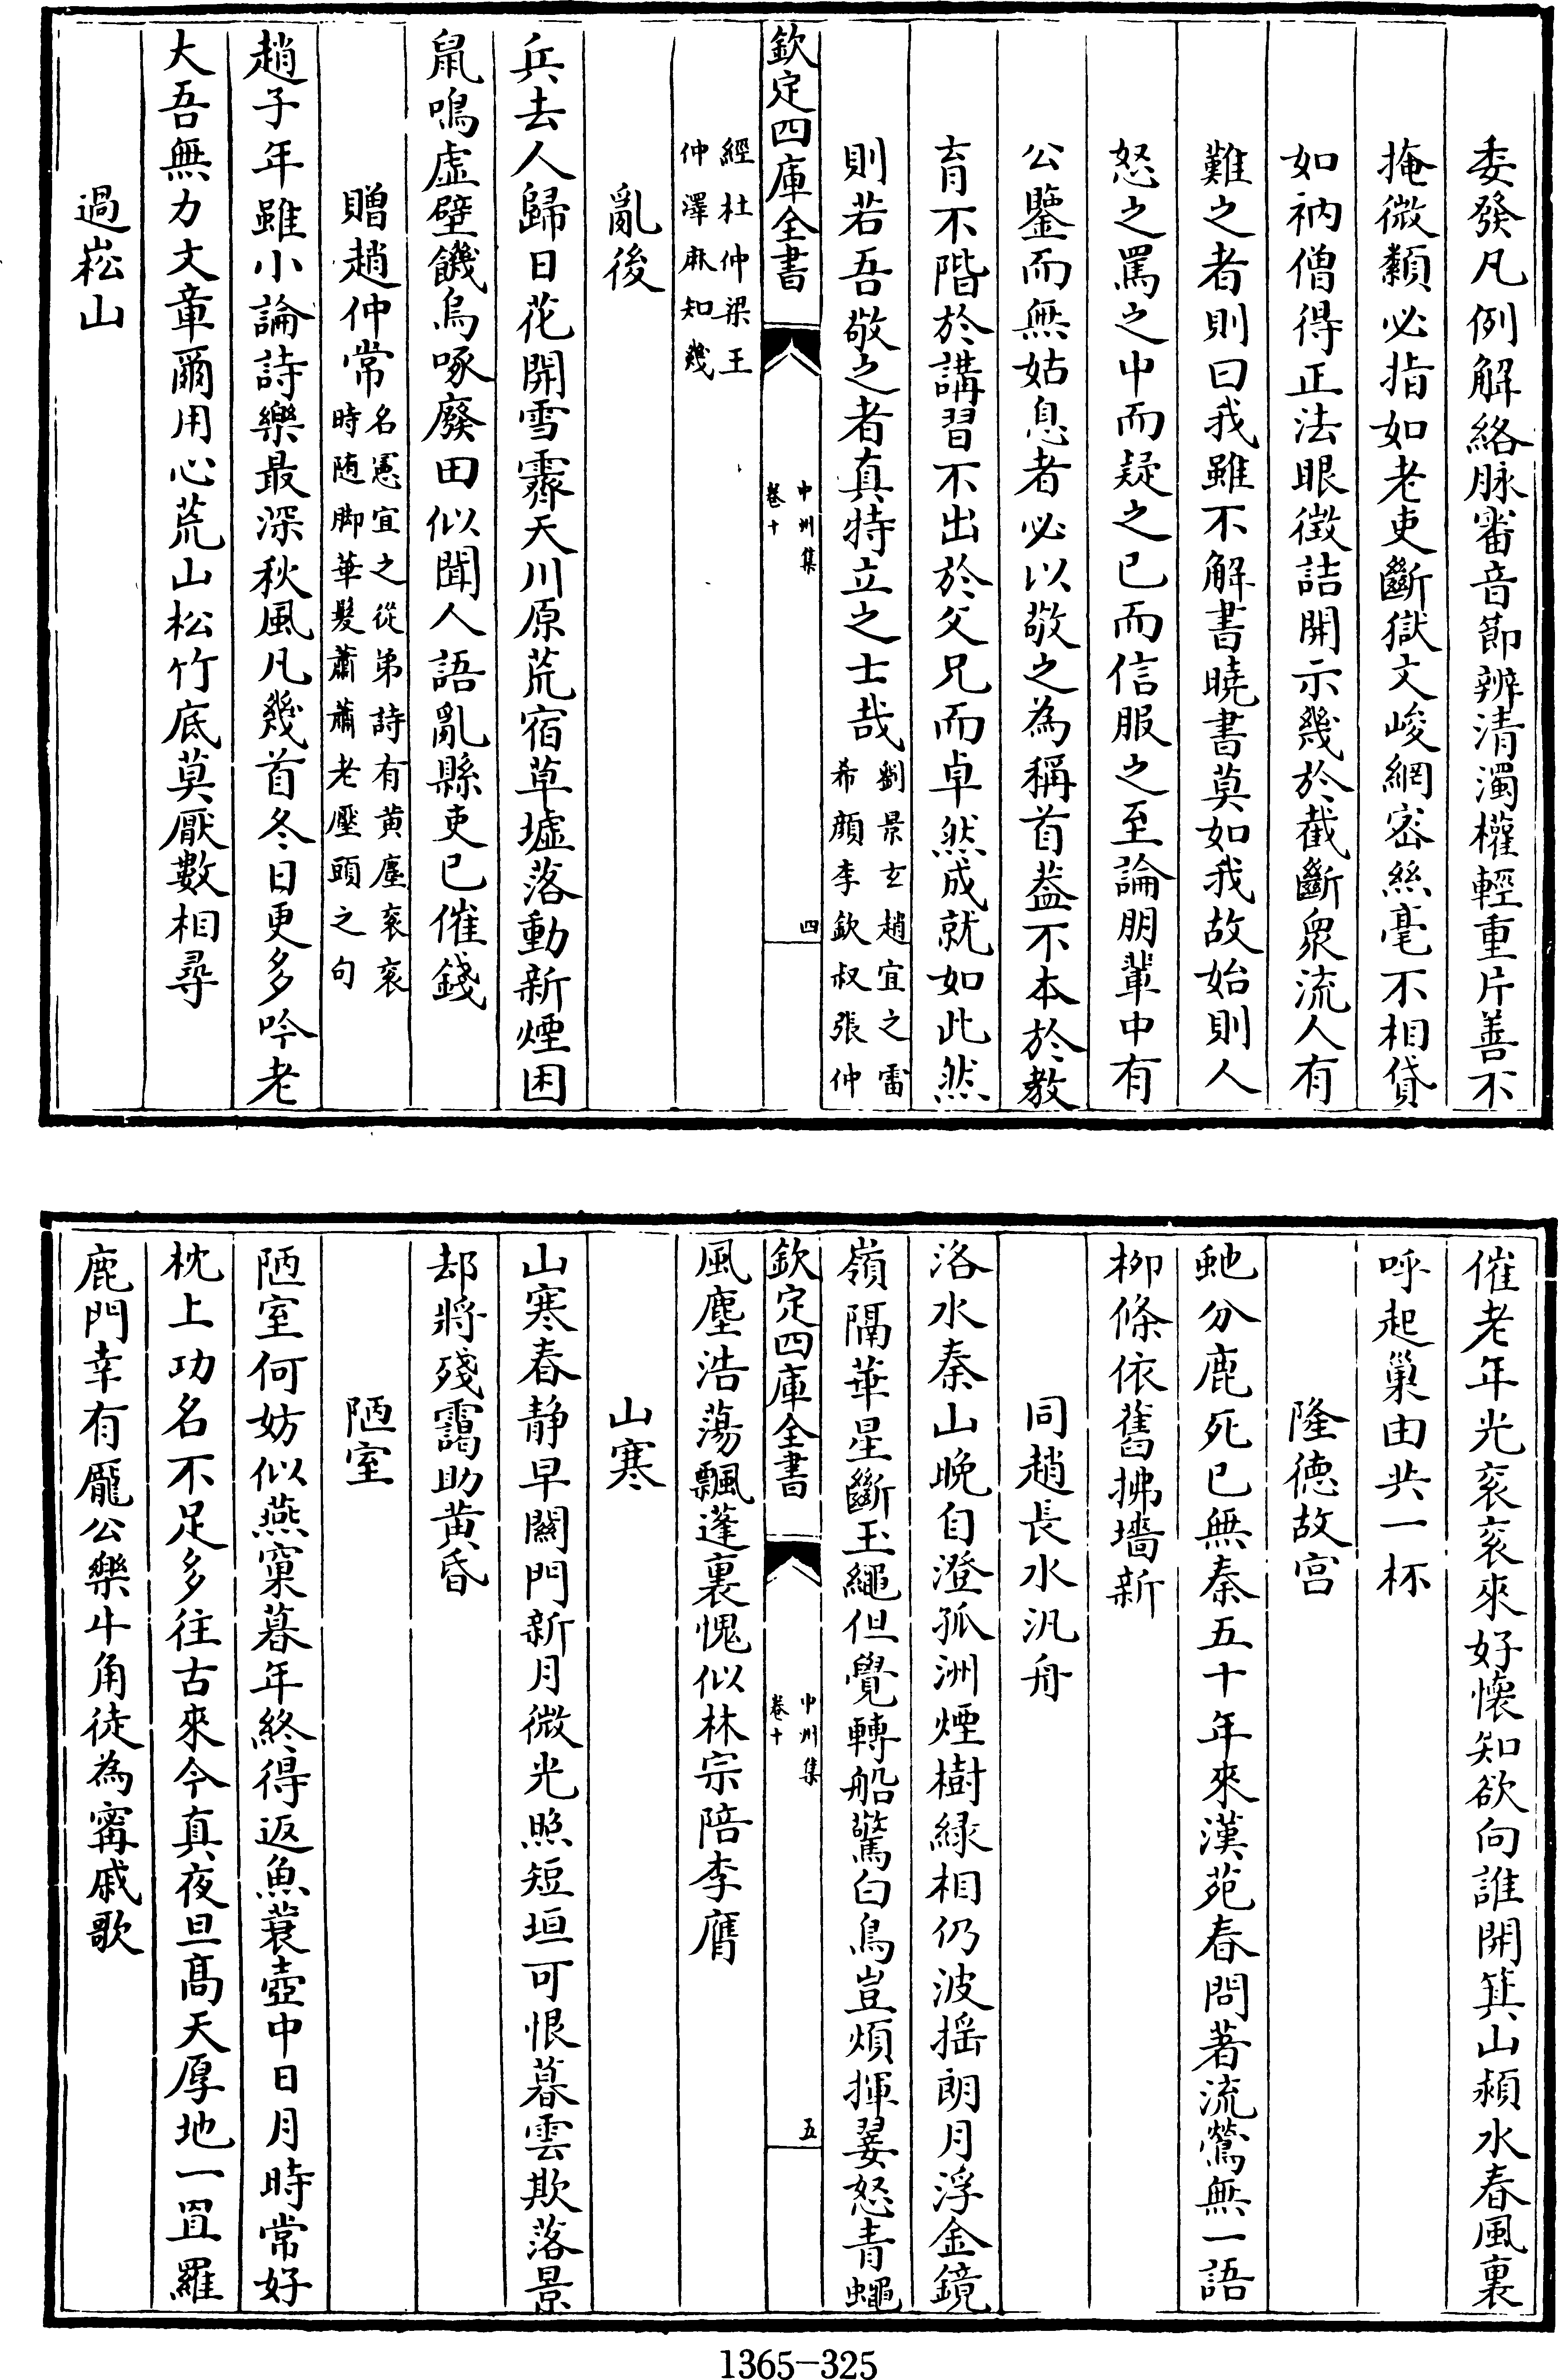 委發凡例解絡脉審音節辨清濁權輕重片善不
掩微纇必指如老吏斷獄文峻網密絲毫不相貸
如衲僧得正法眼徴詰開示幾於截斷衆流人有
難之者則曰我雖不解書曉書莫如我故始則人
怒之罵之中而疑之已而信服之至論朋輩中有
公鑒而無姑息者必以敬之為稱首葢不本於教
育不階於講習不出於父兄而卓然成就如此然
則若吾敬之者真特立之士哉
劉景玄趙宜之雷
希顔李欽叔張仲
欽定四庫全書
中州集
卷十
四
經杜仲梁王
仲澤麻知幾
亂後
兵去人歸日花開雪霽天川原荒宿草墟落動新煙困
鼠鳴虛壁饑烏啄廢田似聞人語亂縣吏已催錢
贈趙仲常
名憲宜之從弟詩有黄塵衮衮
時随脚華髮蕭蕭老壓頭之句
趙子年雖小論詩樂最深秋風凡幾首冬日更多吟老
大吾無力文章爾用心荒山松竹底莫厭數相尋
過崧山
催老年光衮衮來好懐知欲向誰開箕山潁水春風裏
呼起巢由共一杯
隆徳故宫
虵分鹿死已無秦五十年來漢苑春問著流鶯無一語
柳條依舊拂墻新
同趙長水汎舟
洛水秦山晚自澄孤洲煙樹緑相仍波揺朗月浮金鏡
嶺隔華星斷玉繩但覺轉船驚白鳥豈煩揮翣怒青蠅
欽定四庫全書
中州集
卷十
五
風塵浩蕩飄蓬裏愧似林宗陪李膺
山寒
山寒春静早闗門新月微光照短垣可恨暮雲欺落景
却將殘靄助黄昏
陋室
陋室何妨似燕窠暮年終得返魚蓑壺中日月時常好
枕上功名不足多往古來今真夜旦髙天厚地一罝羅
鹿門幸有龎公樂牛角徒為甯戚歌
1365-325